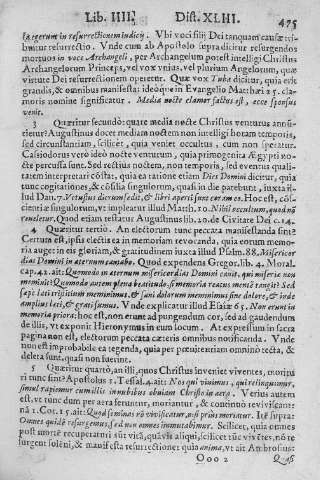 Lib. IIII. Dist. XLIII. 475
surgerum in resurrectionem iudicij. Vbi voci filij Dei tanquam causæ tri-
buitur resurrectio. Vnde cum ab Apostolo supra dicitur resurgendos
mortuos in voce Archangeli, per Archangelum potest intelligi Christus
Archangelorum Princeps, vel vox vnius, vel plurium Angelorum, quæ
virtute Dei resurrectionem operetur. Quæ vox Tuba dicitur, quia erit
grandis, & omnibus manifesta: ideòque in Euangelio Matthæi 25. cla-
moris nomine significatur. Media nocte clamor factus est, ecce sponsus
venit.
3 Quæritur secundò: quare media nocte Christus venturus annū-
tietur? Augustinus docet mediam noctem non intelligi horam temporis,
sed circumstantiam, scilicet, quia veniet occultus, cum non speratur.
Casiodorus verò ideò nocte venturum, quia primogenita Ægypti no-
cte percussa sunt. Sed rectius noctem, non tempora, sed euentus quali-
tatem interpretari cōstat, quia ea ratione etiam Dies Domini dicitur, quia
tunc cogitationes, & cōsilia singulorum, quasi in die patebunt, iuxta il-
lud Dan. 7. Vetustus dierum sedit, & libri aperti sunt coram eo. Hoc est, cōs-
cientiæ singulorum, vt impleatur illud Matth. 10. Nihil occultum, quod nō
reueletur. Quod etiam testatur Augustinus lib. 20. de Ciuitate Dei c. 14.
4 Quæritur tertio. An electorum tunc peccata manifestanda sint?
Certum est, ipsis electis ea in memoriam reuocanda, vt eorum memo-
ria augeat in eis gloriam, & gratitudinem iuxta illud Psalm. 88. Misericor-
dias Domini in æternum cantabo. Quod expendens Gregor. lib. 4. Moral.
cap. 42. ait: Quomodo in æternum misericordias Domini canit, qui miseriæ non
meminit? Quomodo autem plena beatitudo, si memoria reatus mentē tangit? Sed
sæpè læti tristitiam meminimus, & sani dolorum meminimus sine dolore, & inde
amplius læti, & grati sumus. Vnde explicatur illud Esaiæ 65. Non erunt in
memoria priora: hoc est, non erunt ad pungendum cor, sed ad gaudendum
de illis, vt exponit Hieronymus in eum locum. At expressum in sacra
pagina non est, electorum peccata cæteris omnibus notificanda. Vnde
non est improbabile ea tegenda, quia per pœnitentiam omninò tecta, &
deleta sunt, quasi non fuerint.
5 Quæritur quartò, an illi, quos Christus inueniet viuentes, morituri
sint? Apostolus 1. Tessal. 4. ait: Nos qui viuimus, qui relinquimur,
simul rapiemur cum illis in nubibus obuiam Christo in aera. Verius autem
est, vt tunc dum per aera feruntur, moriantur, & continuò reuiuiscant:
nā 1. Cor. 15. ait: Quod seminas nō viuificatur, nisi prius moriatur. Itē supra:
Omnes quidē resurgemus, sed non omnes immutabimur. Scilicet, quia omnes
post mortē recuperaturi sūt vitā, quāuis aliqui, scilicet tūc viuētes, nō re
surgent solēni, & manifesta resurrectione: quia anima, vt ait Ambrosius:
Ooo 2 Quasi